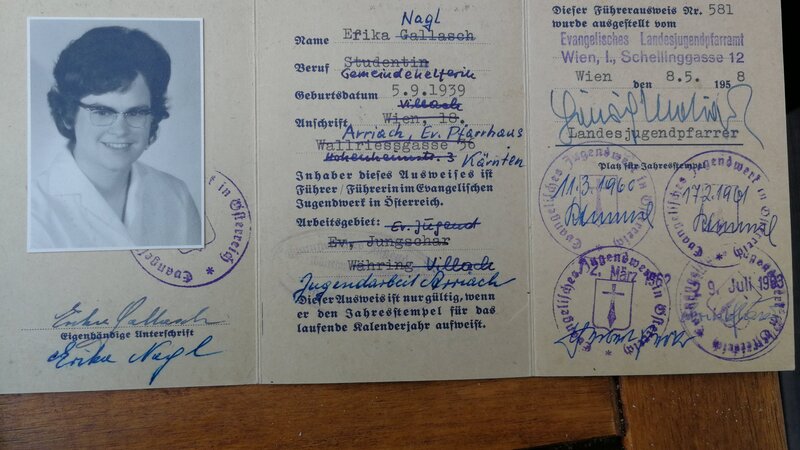 in Österreich * Evangelisches
Erika Gallasch
Eigenhändige Unterschrift
Erika Nagl
Nagl
Name Erika Gallasch
Beruf Studentin
Gemeindehelferin
Geburtsdatum 5.9.1939
Villach
Anschrift Wien, 18.
Arriach, Ev. Pfarrhaus
Wallriessgasse 56
Hohenheimstr. 3 Kärnten
Inhaber dieses Ausweises ist
Führer/Führerin im Evangelischen
Jugendwerk in Österreich.
Arbeitsgebiet: Ev. Jugend
Ev. Jungschar
Währing Villach
Jugendarbeit Arriach
Dieser Ausweis ist nur gültig, wenn
er den Jahresstempel für das
laufende Kalenderjahr aufweist.
Dieser Führerausweis Nr. 581
wurde ausgestellt vom
Evangelisches Landesjugendpfarramt
Wien, I., Schellinggasse 12
Wien den 8.5. 1958
Landesjugendpfarrer
Platz für Jahresstempel
Evangelisches Jugendwerk in Österreich *
11.3.1960
Evangelisches Jugendwerk in Österreich *
17.2.1961
Evangelisches Jugendwerk in Österreich *
2. März 1962
Evangelisches Jugendwerk in Österreich *
9. Juli 1963